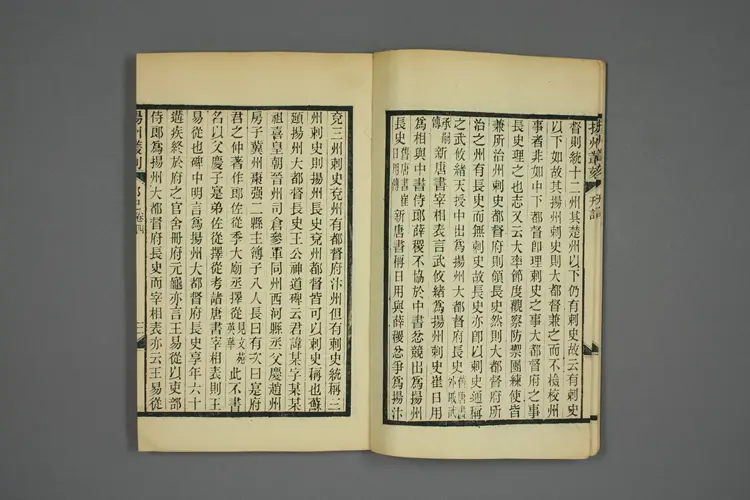 督則統十二州其楚州以下仍有刺史故云有刺史
以下如故其揚州刺史則大都督兼之而不檢校州
事者非如中下都督卽理刺史之事大都督府之事
長史理之也志又云大率節度觀察防禦團練使皆
兼所治州刺史都督府則領長史然則大都督府所
治之州有長史而無刺史故長史亦卽以刺史通稱
之武攸緒天授中出為揚州大都督府長史舊唐書外戚武
承嗣傳新唐書宰相表言武攸緒為揚州刺史崔日用
為相與中書侍郎薛稷不協於中書忿競出為揚州
長史舊唐書崔日用傳新唐書稱日用與薛稷忿爭為揚汴
兗三州刺史兗州有都督府汴州但有刺史統稱三
州刺史則揚州長史兗州都督皆可以刺史稱也蘇
頲揚州大都督長史王公神道碑云君諱某字某某
祖喜皇朝晉州司倉參軍同州西河縣丞父慶趙州
房子冀州棗强二縣主簿子八人長曰有次曰是府
君之仲著作郎佐從季大廟丞擇從見文苑英華此不書
名以父慶子是弟佐從擇從考諸唐書宰相表則王
易從也碑中明言為揚州大都督府長史享年六十
遘疾終於府之官舍冊府元龜亦言王易從以吏部
侍郎為揚州大都督府長史而宰相表亦云王易從
揚州叢刻